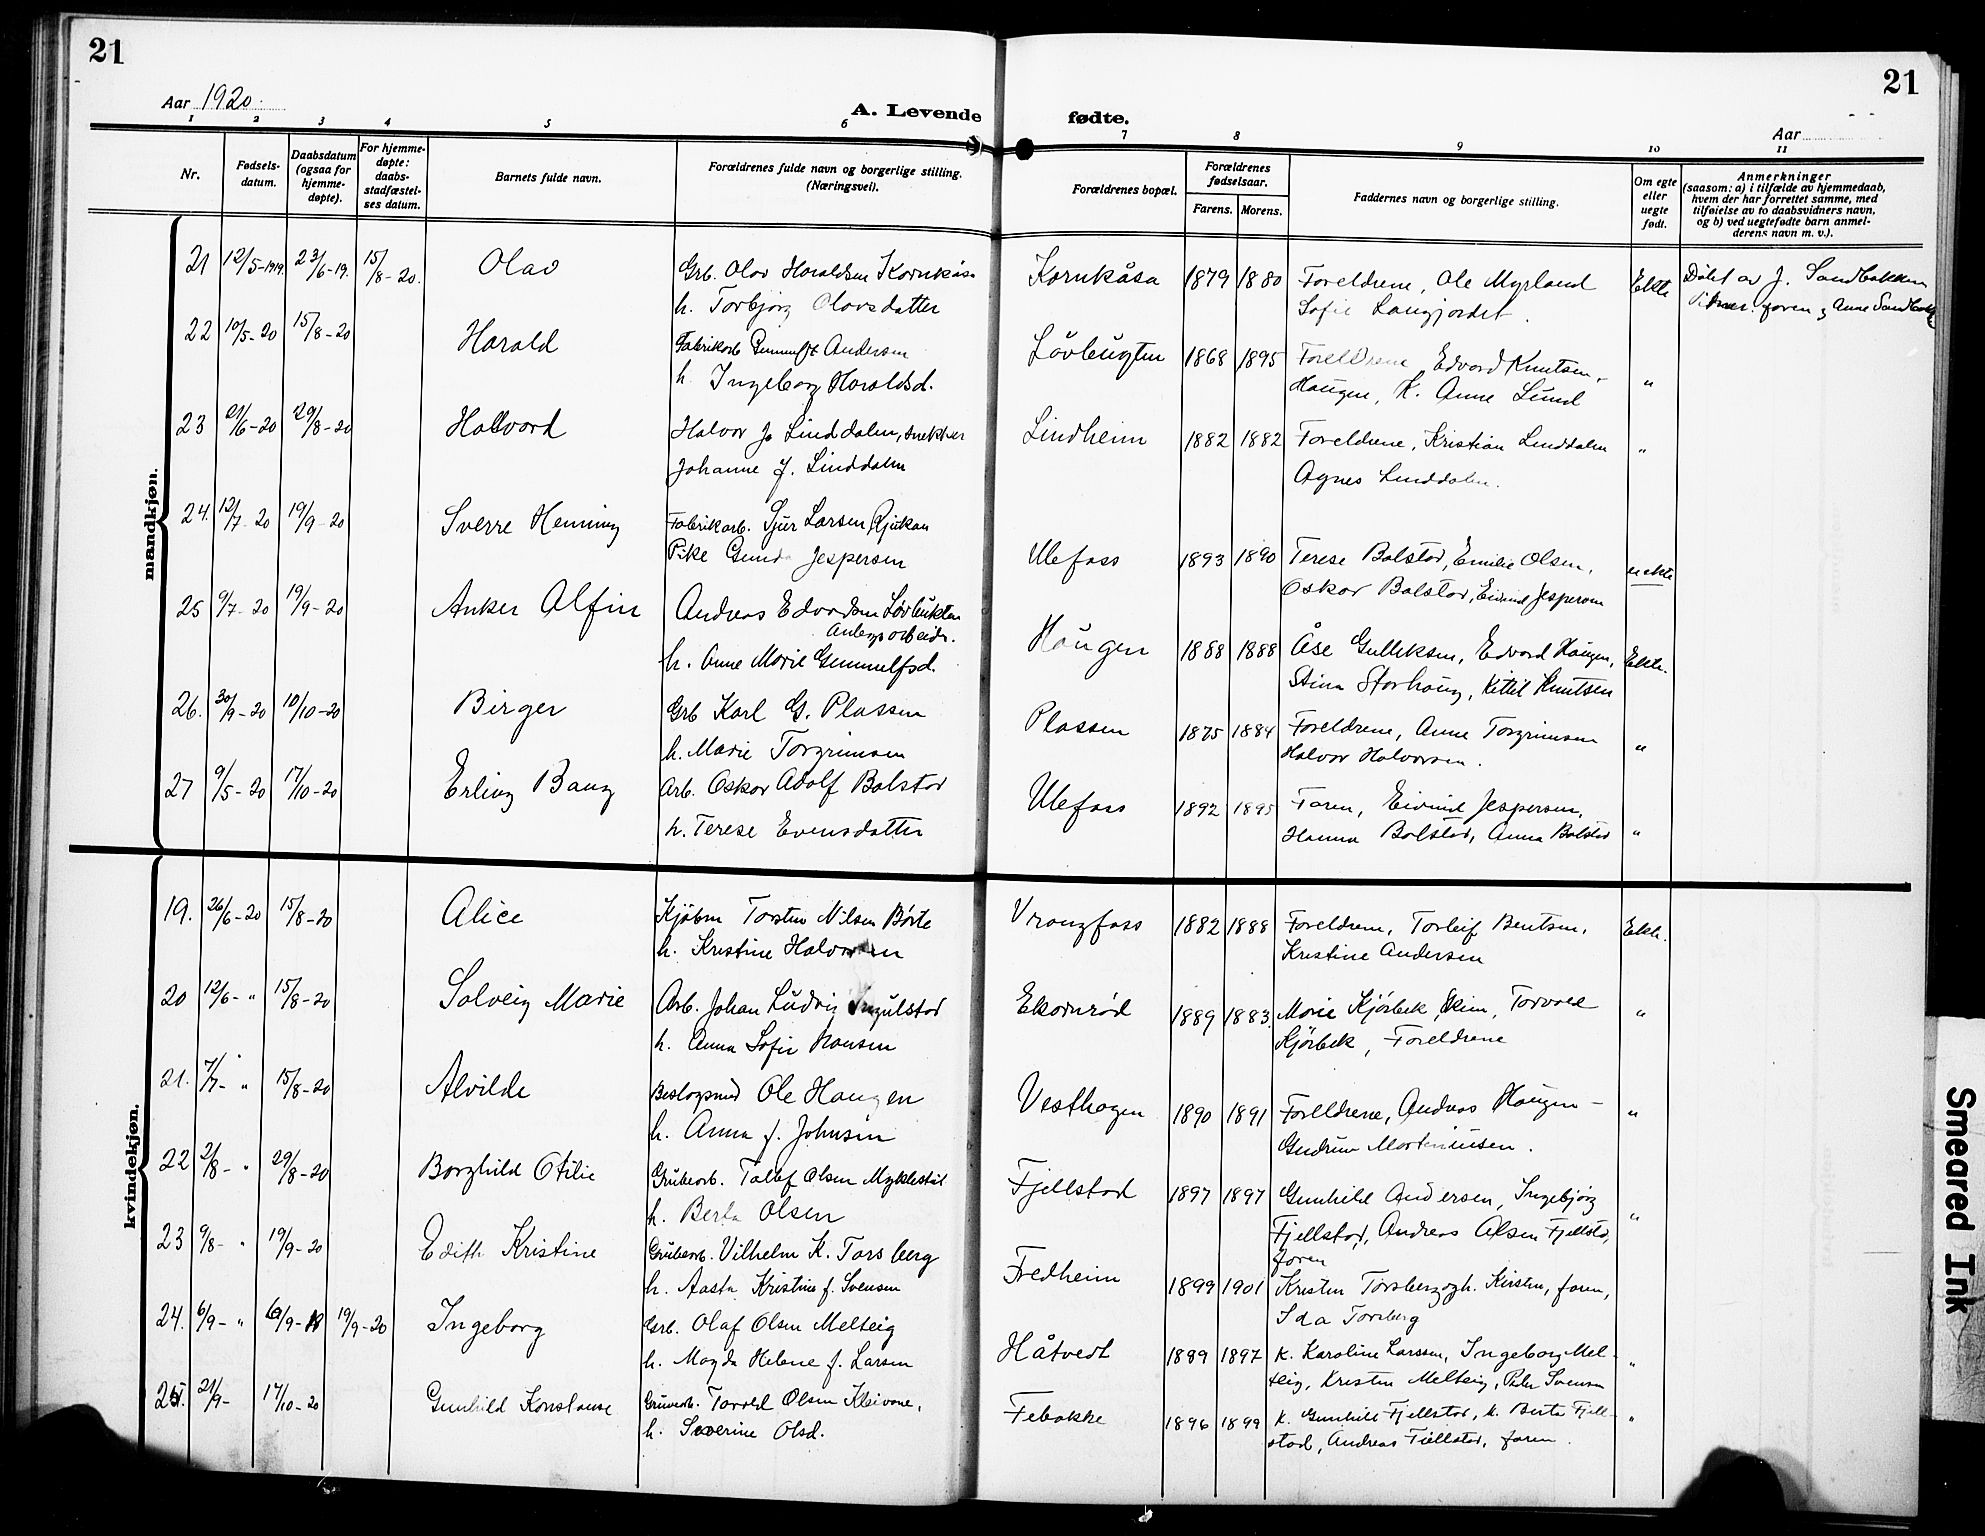 21
21
Aar 1920.
A. Levende fødte.
Aar
1 2 3 4 5 6 7 8 9 10 11
Nr.
Fødsels-
datum.
Daabsdatum
(ogsaa for
hjemme-
døpte).
For hjemme-
døpte:
daabs-
stadfæstel-
ses datum.
Barnets fulde navn.
Forældrenes fulde navn og borgerlige stilling.
(Næringsvei).
Forældrenes bopæl.
Forældrenes
fødselsaar.
Farens. Morens.
Faddernes navn og borgerlige stilling.
Om egte
eller
uegte
født.
Anmerkninger
(saasom: a) i tilfælde av hjemmedaab,
hvem der har forrettet samme, med
tilføielse av to daabsvidners navn,
og b) ved uegtefødte barn anmel-
derens navn m. v.).
mandkjøn.
21 12/5-1919. 23/6-19. 15/8-20. Olav Grb. Olav Haraldsen Kornkåsa Kornkåsa 1879 1880 Foreldrene, Ole Myrland Ekte Døbt av J. Sandbakken
h. Torbjørg Olavsdatter Sofie Langjordet. faren, Anne Sandbakk
22 10/5-20 15/8-20 Harald Fabrikarb. Andersen Løvbugten 1868 1895 Foreldrene, Edvard Knutsen, "
h. Ingeborg Haraldsd. Haugen, K. Anne Lund
23 21/6-20 29/8-20 Halvord Halvor Jo Linddalen, snekker Lindheim 1882 1882 Foreldrene, Kristian Linddalen "
Johanne f. Linddalen Agnes Linddalen.
24. 12/7-20 19/9-20 Sverre Henning Fabrikarb. Sjur Larsen Rjukan
Pike Gunda Jespersen Ulefoss 1893 1890 Terese Bolstad, Emilie Olsen, uekte
Oskar Bolstad, Eivind Jespersen
25 9/7-20 19/9-20 Anker Alfin Andreas Edvardsen Løvbukten
Anlegsarbeider. Haugen 1888 1888 Åse Gulliksen, Edvard Haugen, Ekte.
h. Anne Marie Gemmelfsd. Stina Storhaug, Kittil Knutsen
26. 30/9-20 10/10-20 Birger Grb Karl G. Plassen Plassen 1875 1884 Foreldrene, Anne Torgrimsen "
h. Marie Torgrimsen Halvor Halvorsen.
27 9/5-20 17/10-20 Erling Bang Arb. Oskar Adolf Bolstad Ulefoss 1892 1895 Faren, Eivind Jespersen,
h. Terese Evensdatter Hanna Bolstad, Anna Bolstad "
kvindekjøn.
19. 26/6-20 15/8-20 Alice Kjøbm Torsten Nilsen Børte Vrangfoss 1882 1888 Foreldrene, Torleif Bentsen, Ekte.
h. Kristine Halvorsen Kristine Andersen
20 12/6- " 15/8-20 Solveig Marie Arb. Johan Ludvig Ingulstad Ekornrød 1889 1883. Marie Kjørbek, Torvald "
h. Anna Sofie Hansen Kjørbek, Foreldrene
21. 7/7- " 15/8-20 Alvilde Beslagsmed Ole Haugen Vesthagen 1890 1891 Foreldrene, Andreas Haugen - "
h. Anna f. Johnsen Gudrun Martiniusen.
22 2/8- " 29/8-20 Borghild Otilie Grubearb. Tallef Olsen Myklestul Fjellstad 1897 1897 Gunhild Andersen, Ingebjørg "
h. Berta Olsen Fjellstad, Andreas Olsen Fjellstad,
faren
23 9/8- " 19/9-20 Edith Kristine Grubearb. Vilhelm K. Torsberg Fredheim 1899 1901 Kristen Torsberg og h. Kirsten, faren,
h. Aasta Kristine f. Svensen Ida Torsberg
24. 6/9- " 19/9-20 Ingeborg Grb. Olaf Olsen Melteig Håtvedt 1899 1897 K. Karoline Larssen, Ingeborg Mel- "
h. Magda Helene f. Larsen teig, Kristen Melteig, Peder Svensen
25. 21/9- 17/10-20 Gunhild Konstanse Gruvearb. Torvald Olsen Kleivane, Febakke 1896 1899 K. Gunhild Fjellstad, K. Berta Fjell- "
h. Severine Olsd. stad, Andreas Fjellstad, faren.
Smeared Ink